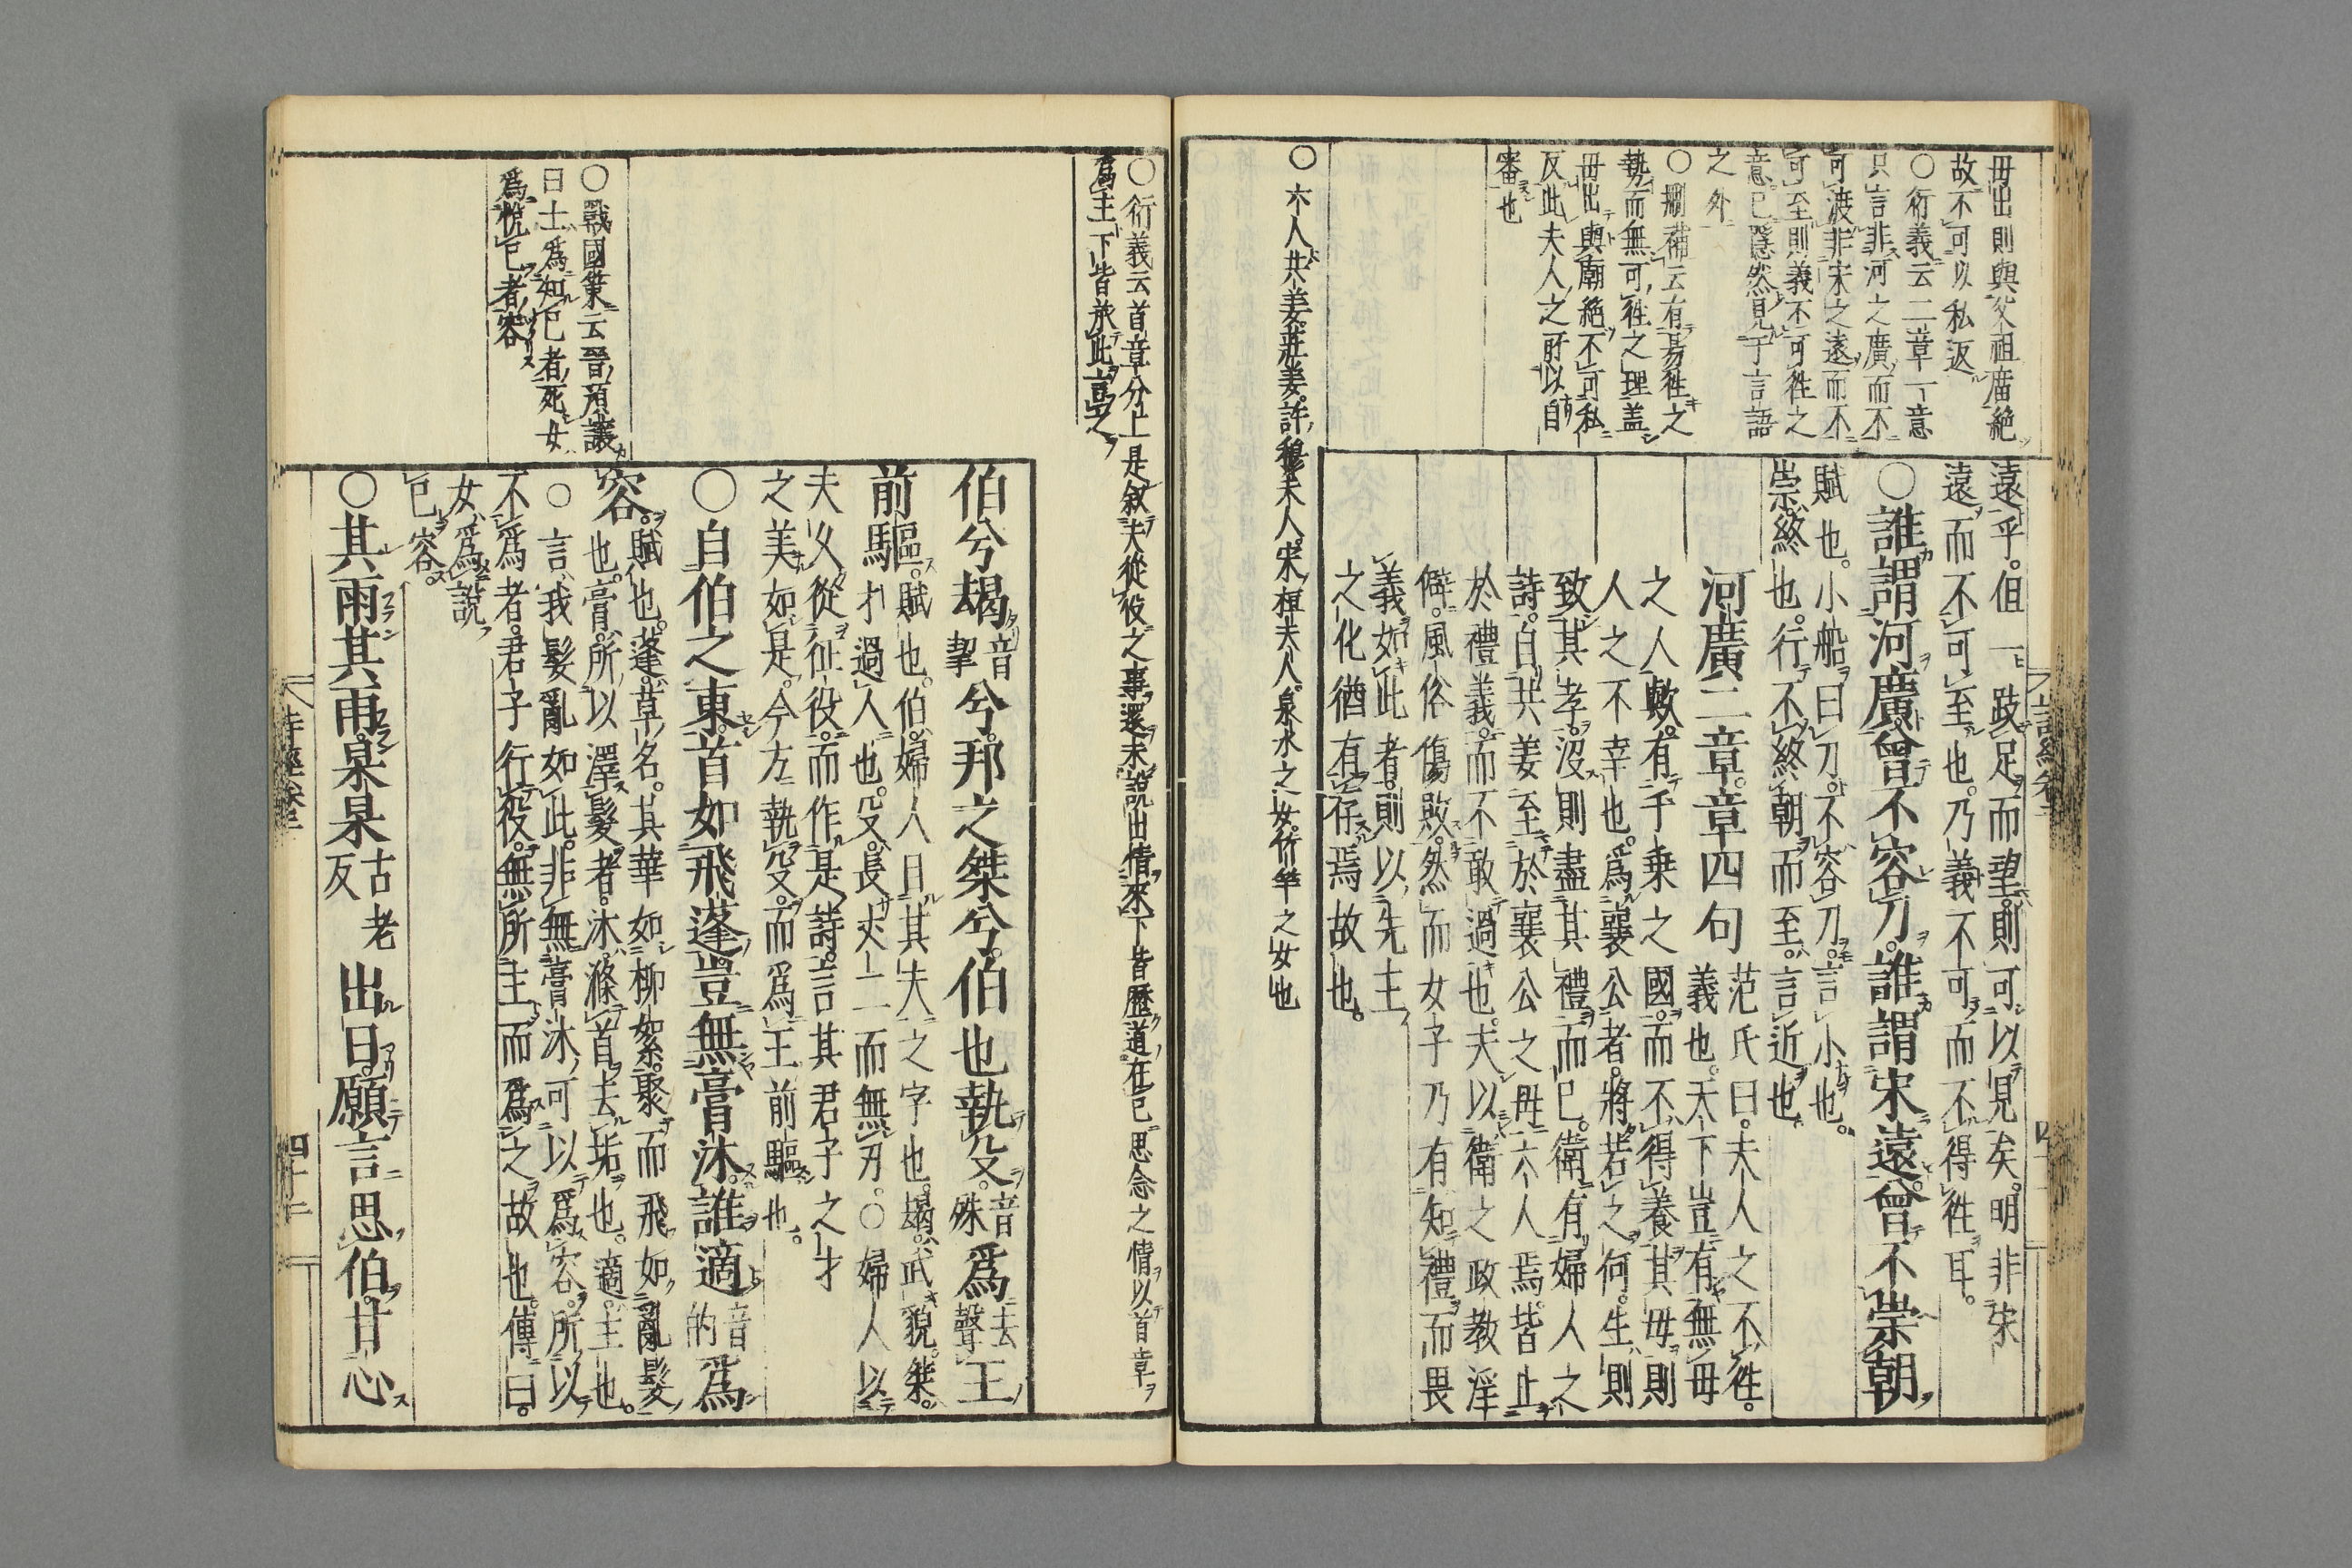 毋出則與父祖廟絶
故不可以私返
○衍義云二章一意
只言非河之廣而不
可渡非宋之遠而不
可至則義不可徃之
意已隱然見于言語
之外
○刪補云有易徃之
勢而無可徃之理盖
毋出與廟絶不可私
反此夫人之所以自
審也
遠乎。但一跂足而望則可以見矣。明非宋
遠而不可至也。乃義不可而不得徃耳。
○誰謂河廣曾不容刀。誰謂宋遠曾不崇朝
賦也。小船曰刀。不容刀。言小也。
崇。終也。行不終朝而至。言近也
河廣二章。章四句
范氏曰。夫人之不徃。
義也。天下豈有無毋
之人歟。有千乗之國。而不得養其毋。則
人之不幸也。爲襄公者。將若之何。生則
致其孝。沒則盡其禮而已。衛有婦人之
詩。自共姜至於襄公之毋六人焉。皆止
於禮義。而不敢過也。夫以衛之政教淫
僻。風俗傷敗。然而女子乃有知禮而畏
義如此者。則以先王
之化猶有存焉故也。
○六人共姜。莊姜。許穆夫人。宋桓夫人。泉水之女。竹竿之女也
○衍義云首章分上是敘夫從役之事還未説出情來下皆歷道在已思念之情以首章
爲主下皆於此言之
伯兮朅音挈兮。邦之桀兮。伯也執殳。音殊爲去聲王
前驅。賦也。伯婦人目其夫之字也。朅。武貌。桀。
才過人也。殳。長丈二而無刃。○婦人以
夫乆從征役。而作是詩。言其君子之才
之美如是。今方執殳。而爲王前驅也。
○自伯之東。首如飛蓬。豈無膏沐。誰適音的爲
容。賦也。蓬。草名。其華如柳絮。聚而飛如亂髮
也。膏。所以澤髮者。沐。滌首去垢也。適。主也。
○言我髮亂如此。非無膏沐可以爲容。所以
不爲者。君子行役。無所主而爲之故也。傳曰。
女爲説
已容。
○戰國策云晉預讓
曰士爲知已者死女
爲悅已者容
○其雨其雨。杲杲古老反出日。願言思伯。甘心
詩經卷三
四十二